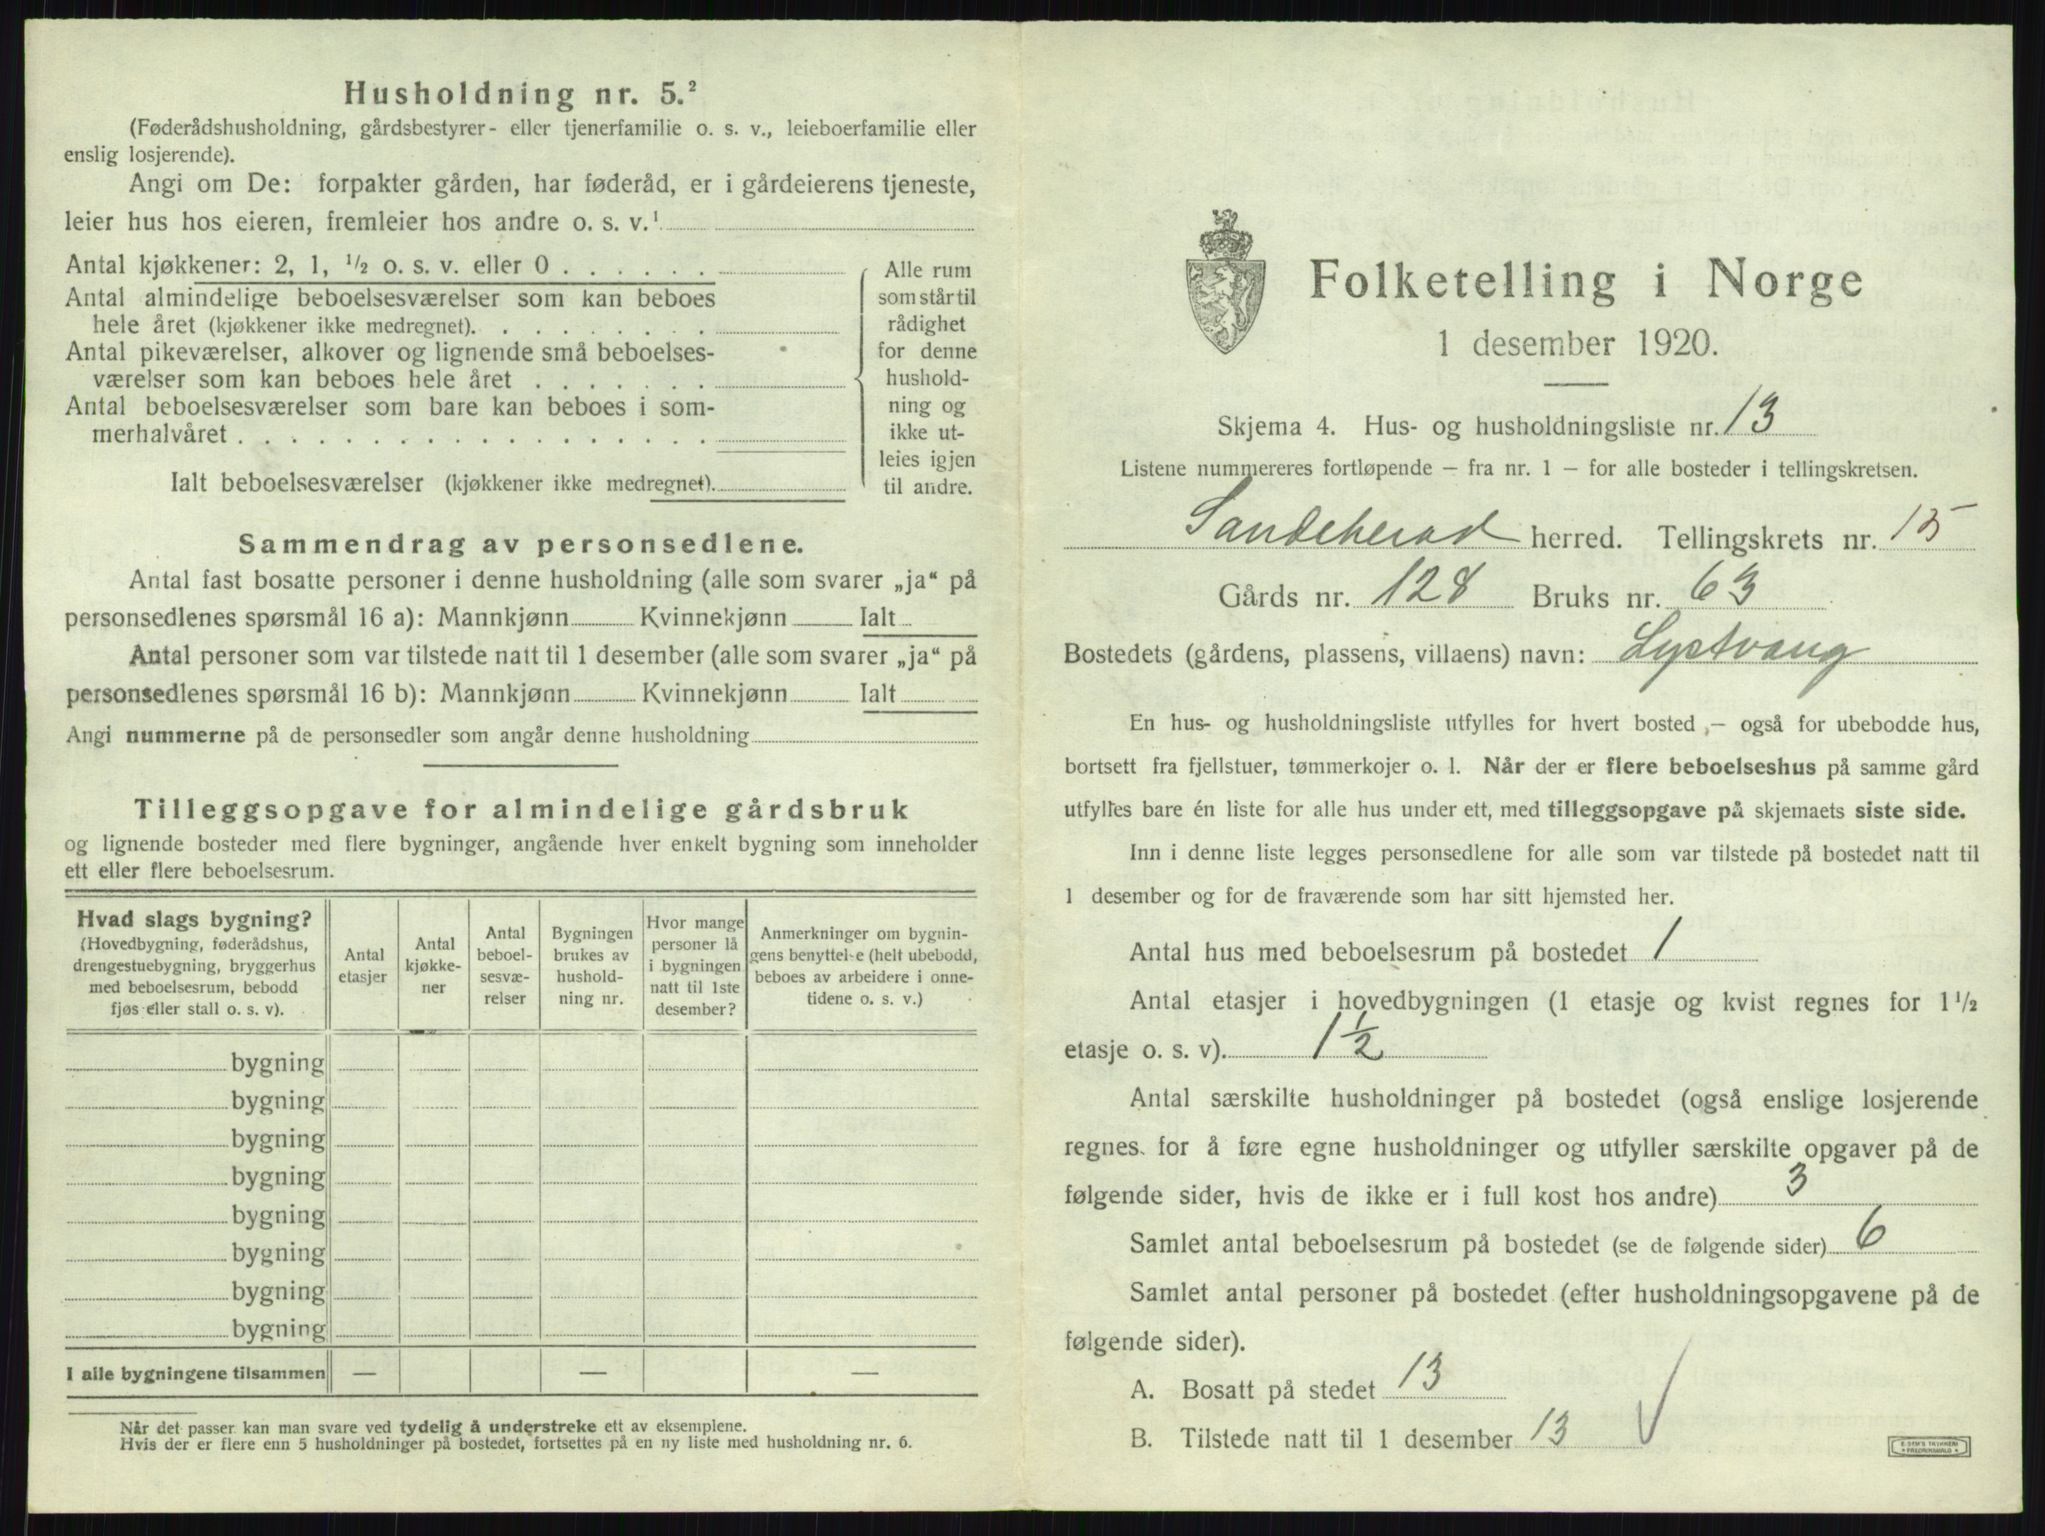 Husholdning nr. 5.²
(Føderådshusholdning, gårdsbestyrer- eller tjenerfamilie o. s. v., leieboerfamilie eller
enslig losjerende).
Angi om De: forpakter gården, har føderåd, er i gårdeierens tjeneste,
leier hus hos eieren, fremleier hos andre o. s. v.¹
Antal kjøkkener: 2, 1, ½ o. s. v. eller 0 . . . . . .
Antal almindelige beboelsesværelser som kan beboes
hele året (kjøkkener ikke medregnet). . . . . . . . .
Antal pikeværelser, alkover og lignende små beboelses-
værelser som kan beboes hele året . . . . . . .
Antal beboelsesværelser som bare kan beboes i som-
merhalvåret . . . . . . . . . . . . . . . . . .
Ialt beboelsesværelser (kjøkkener ikke medregnet).
Alle rum
som står til
rådighet
for denne
hushold-
ning og
ikke ut-
leies igjen
til andre.
Sammendrag av personsedlene.
Antal fast bosatte personer i denne husholdning (alle som svarer „ja“ på
personsedlenes spørsmål 16 a): Mannkjønn Kvinnekjønn Ialt
Antal personer som var tilstede natt til 1 desember (alle som svarer „ja“ på
personsedlenes spørsmål 16 b): Mannkjønn Kvinnekjønn Ialt
Angi nummerne på de personsedler som angår denne husholdning
Tilleggsopgave for almindelige gårdsbruk
og lignende bosteder med flere bygninger, angående hver enkelt bygning som inneholder
ett eller flere beboelsesrum.
Hvad slags bygning?
(Hovedbygning, føderådshus,
drengestuebygning, bryggerhus
med beboelsesrum, bebodd
fjøs eller stall o. s. v).
Antal
etasjer
Antal
kjøkke-
ner
Antal
beboel-
sesvæ-
relser
Bygningen
brukes av
hushold-
ning nr.
Hvor mange
personer lå
i bygningen
natt til 1ste
desember?
Anmerkninger om bygnin-
gens benyttelse (helt ubebodd,
beboes av arbeidere i onne-
tidene o. s. v.)
bygning
bygning
bygning
bygning
bygning
bygning
bygning
bygning
I alle bygningene tilsammen — — —
Når det passer kan man svare ved tydelig å understreke ett av eksemplene.
Hvis der er flere enn 5 husholdninger på bostedet, fortsettes på en ny liste med husholdning nr. 6.
Folketelling i Norge
1 desember 1920.
Skjema 4. Hus- og husholdningsliste nr. 13
Listene nummereres fortløpende — fra nr. 1 — for alle bosteder i tellingskretsen.
Sandeherad herred. Tellingskrets nr. 15
Gårds nr. 128 Bruks nr. 63
Bostedets (gårdens, plassens, villaens) navn: Lystvang
En hus- og husholdningsliste utfylles for hvert bosted — også for ubebodde hus,
bortsett fra fjellstuer, tømmerkojer o. l. Når der er flere beboelseshus på samme gård
utfylles bare én liste for alle hus under ett, med tilleggsopgave på skjemaets siste side.
Inn i denne liste legges personsedlene for alle som var tilstede på bostedet natt til
1 desember og for de fraværende som har sitt hjemsted her.
Antal hus med beboelsesrum på bostedet 1
Antal etasjer i hovedbygningen (1 etasje og kvist regnes for 1 ½
etasje o. s. v). 1½
Antal særskilte husholdninger på bostedet (også enslige losjerende
regnes for å føre egne husholdninger og utfyller særskilte opgaver på de
følgende sider, hvis de ikke er i full kost hos andre) 3
Samlet antal beboelsesrum på bostedet (se de følgende sider) 6
Samlet antal personer på bostedet (efter husholdningsopgavene på de
følgende sider).
A. Bosatt på stedet 13
B. Tilstede natt til 1 desember 13